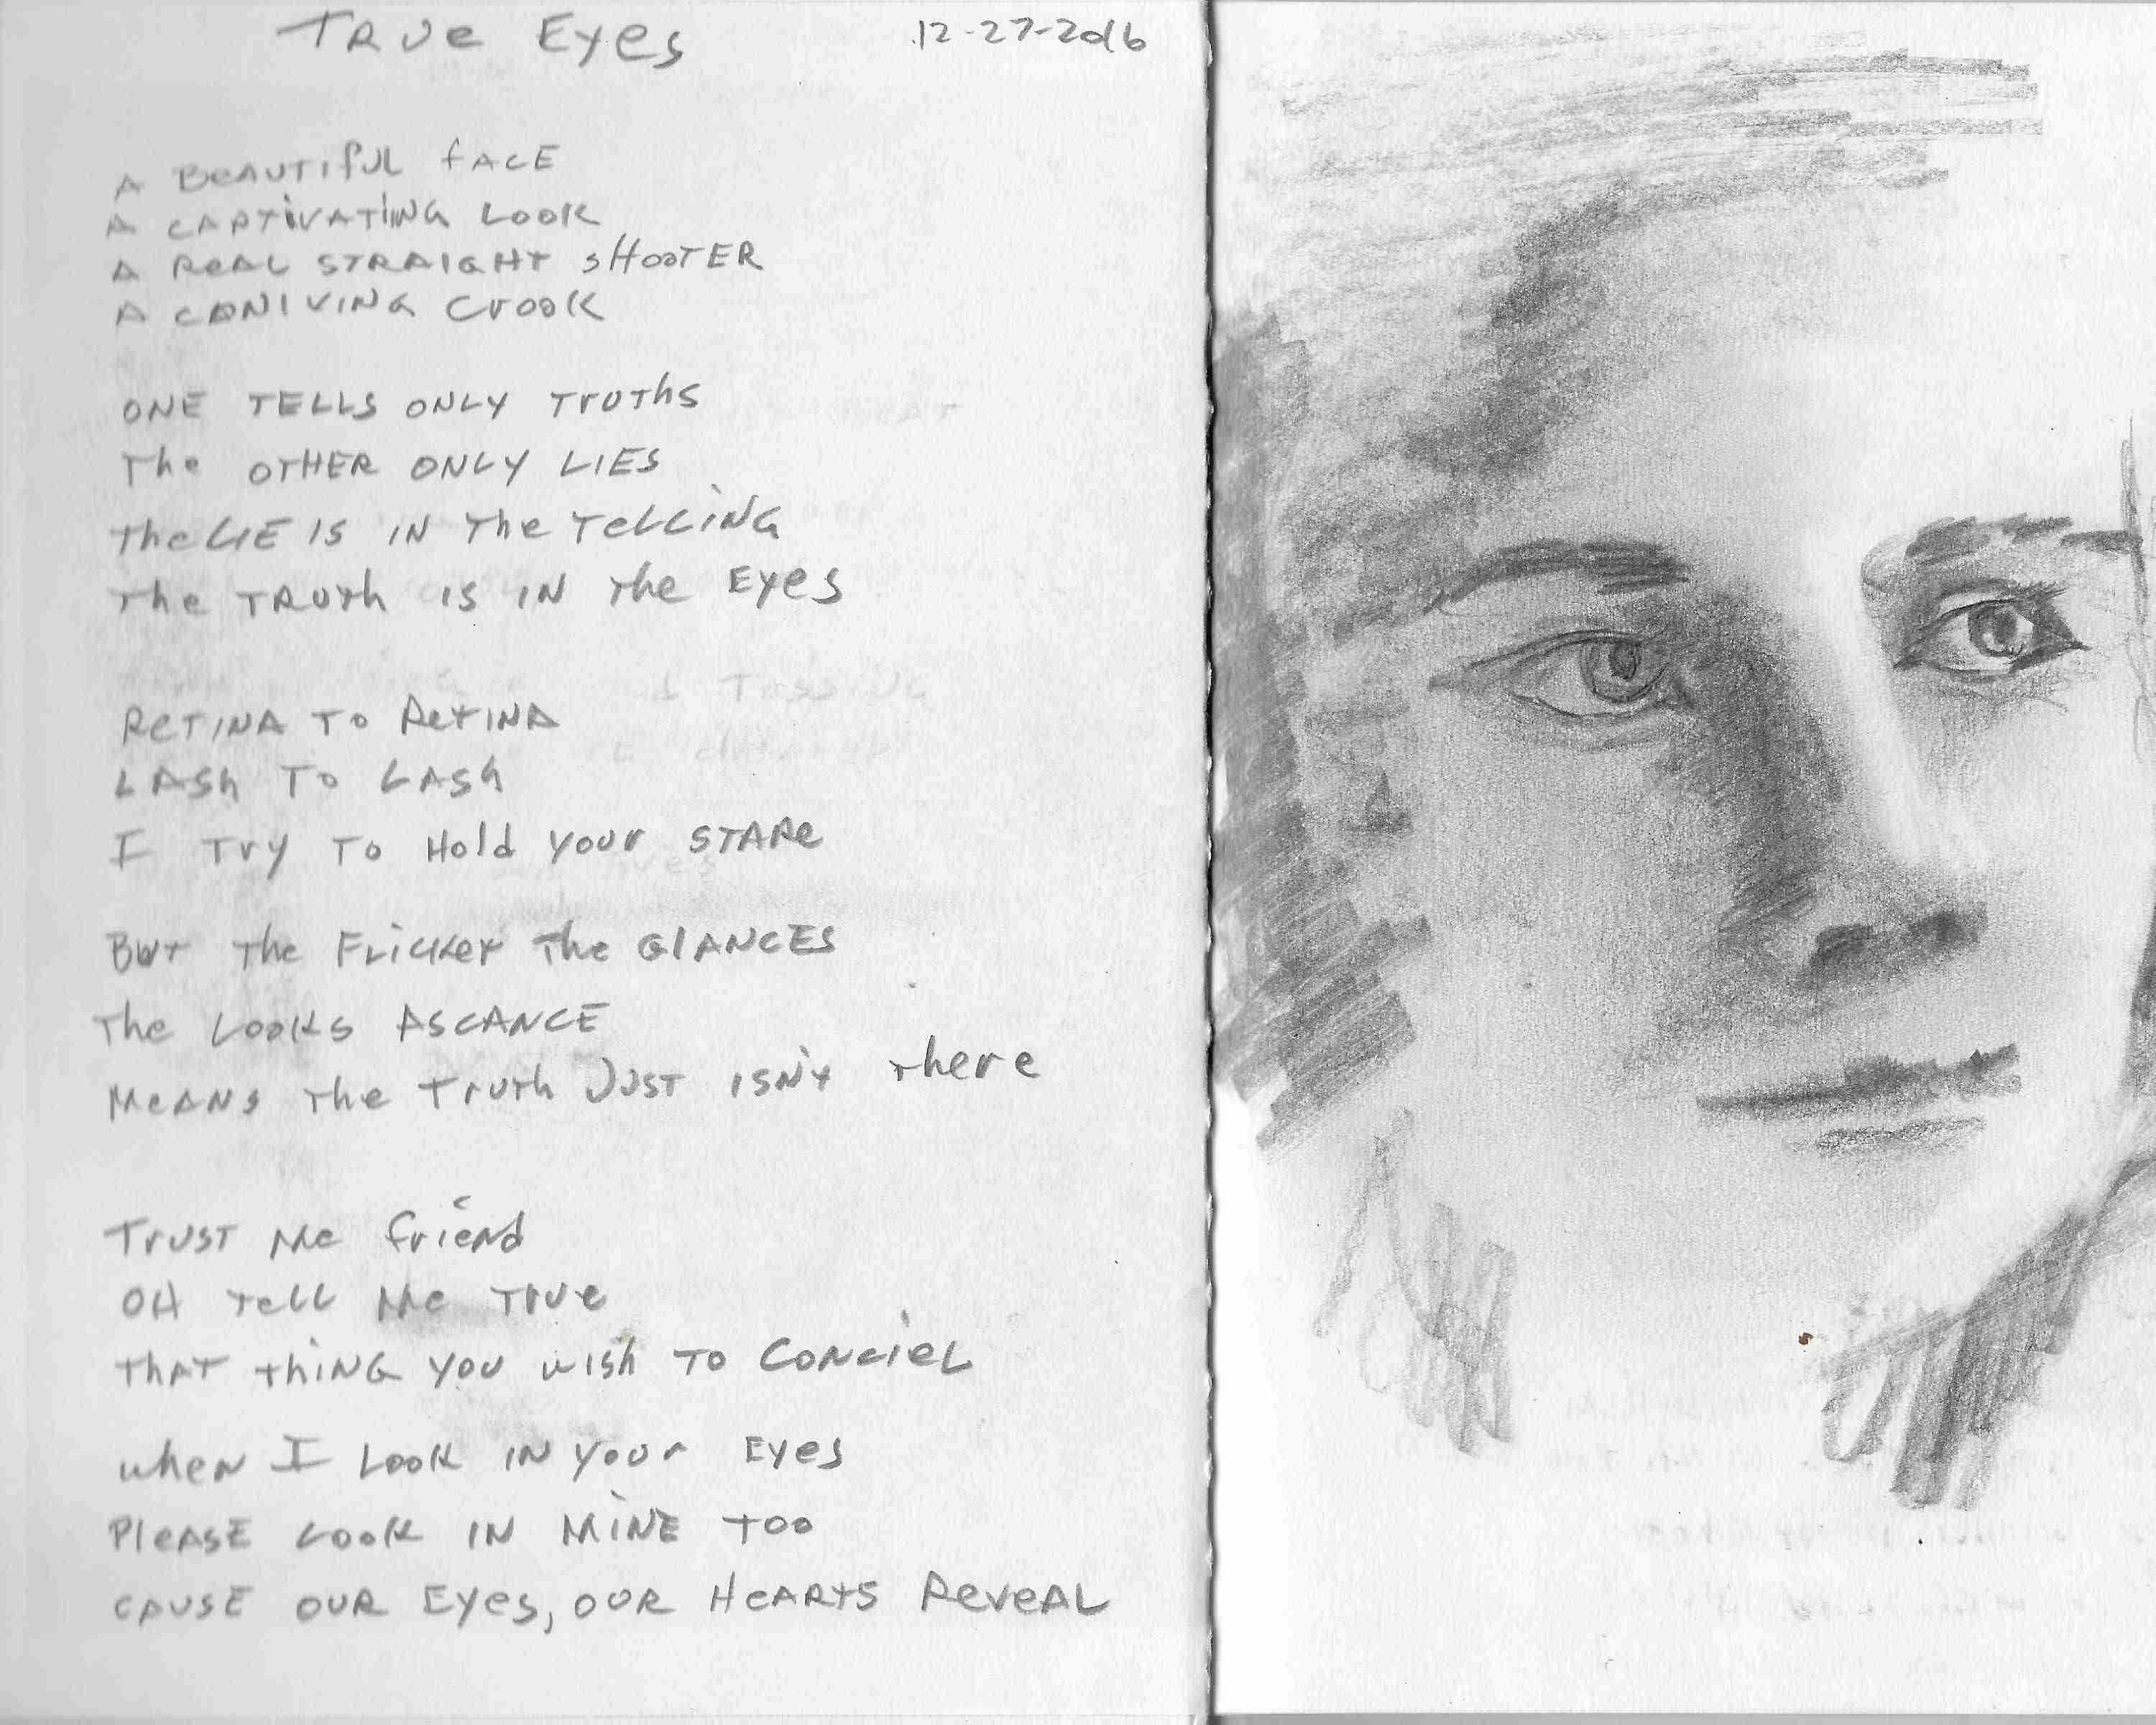 TRUe EYes 12-27-2016
A BeAUTIfUL fACE
A CAPTiVATiNG LOOK
A ReAL STRAIGHT sHOOTER
A CONIVING CrOOK
ONE TELLS ONLY TrUThS
The OTHER ONLY LIES
The LIE IS IN The TeLLiNG
The TRUth IS IN the EYeS
ReTINA TO ReTINA
LASh TO LASh
I Try TO Hold your STARe
BUT The FLicKer The GlANCES
The LOOKS ASCANCE
MeANS the Truth JUST ISN't there
TrUST Me friend
OH TeLL Me TrUe
THAT thiNG YOU wish TO CONcieL
when I LOOK IN your EYeS
PleASE LOOK IN MiNE TOO
CAUSE OUR EYeS, OUR HeARtS ReveAL